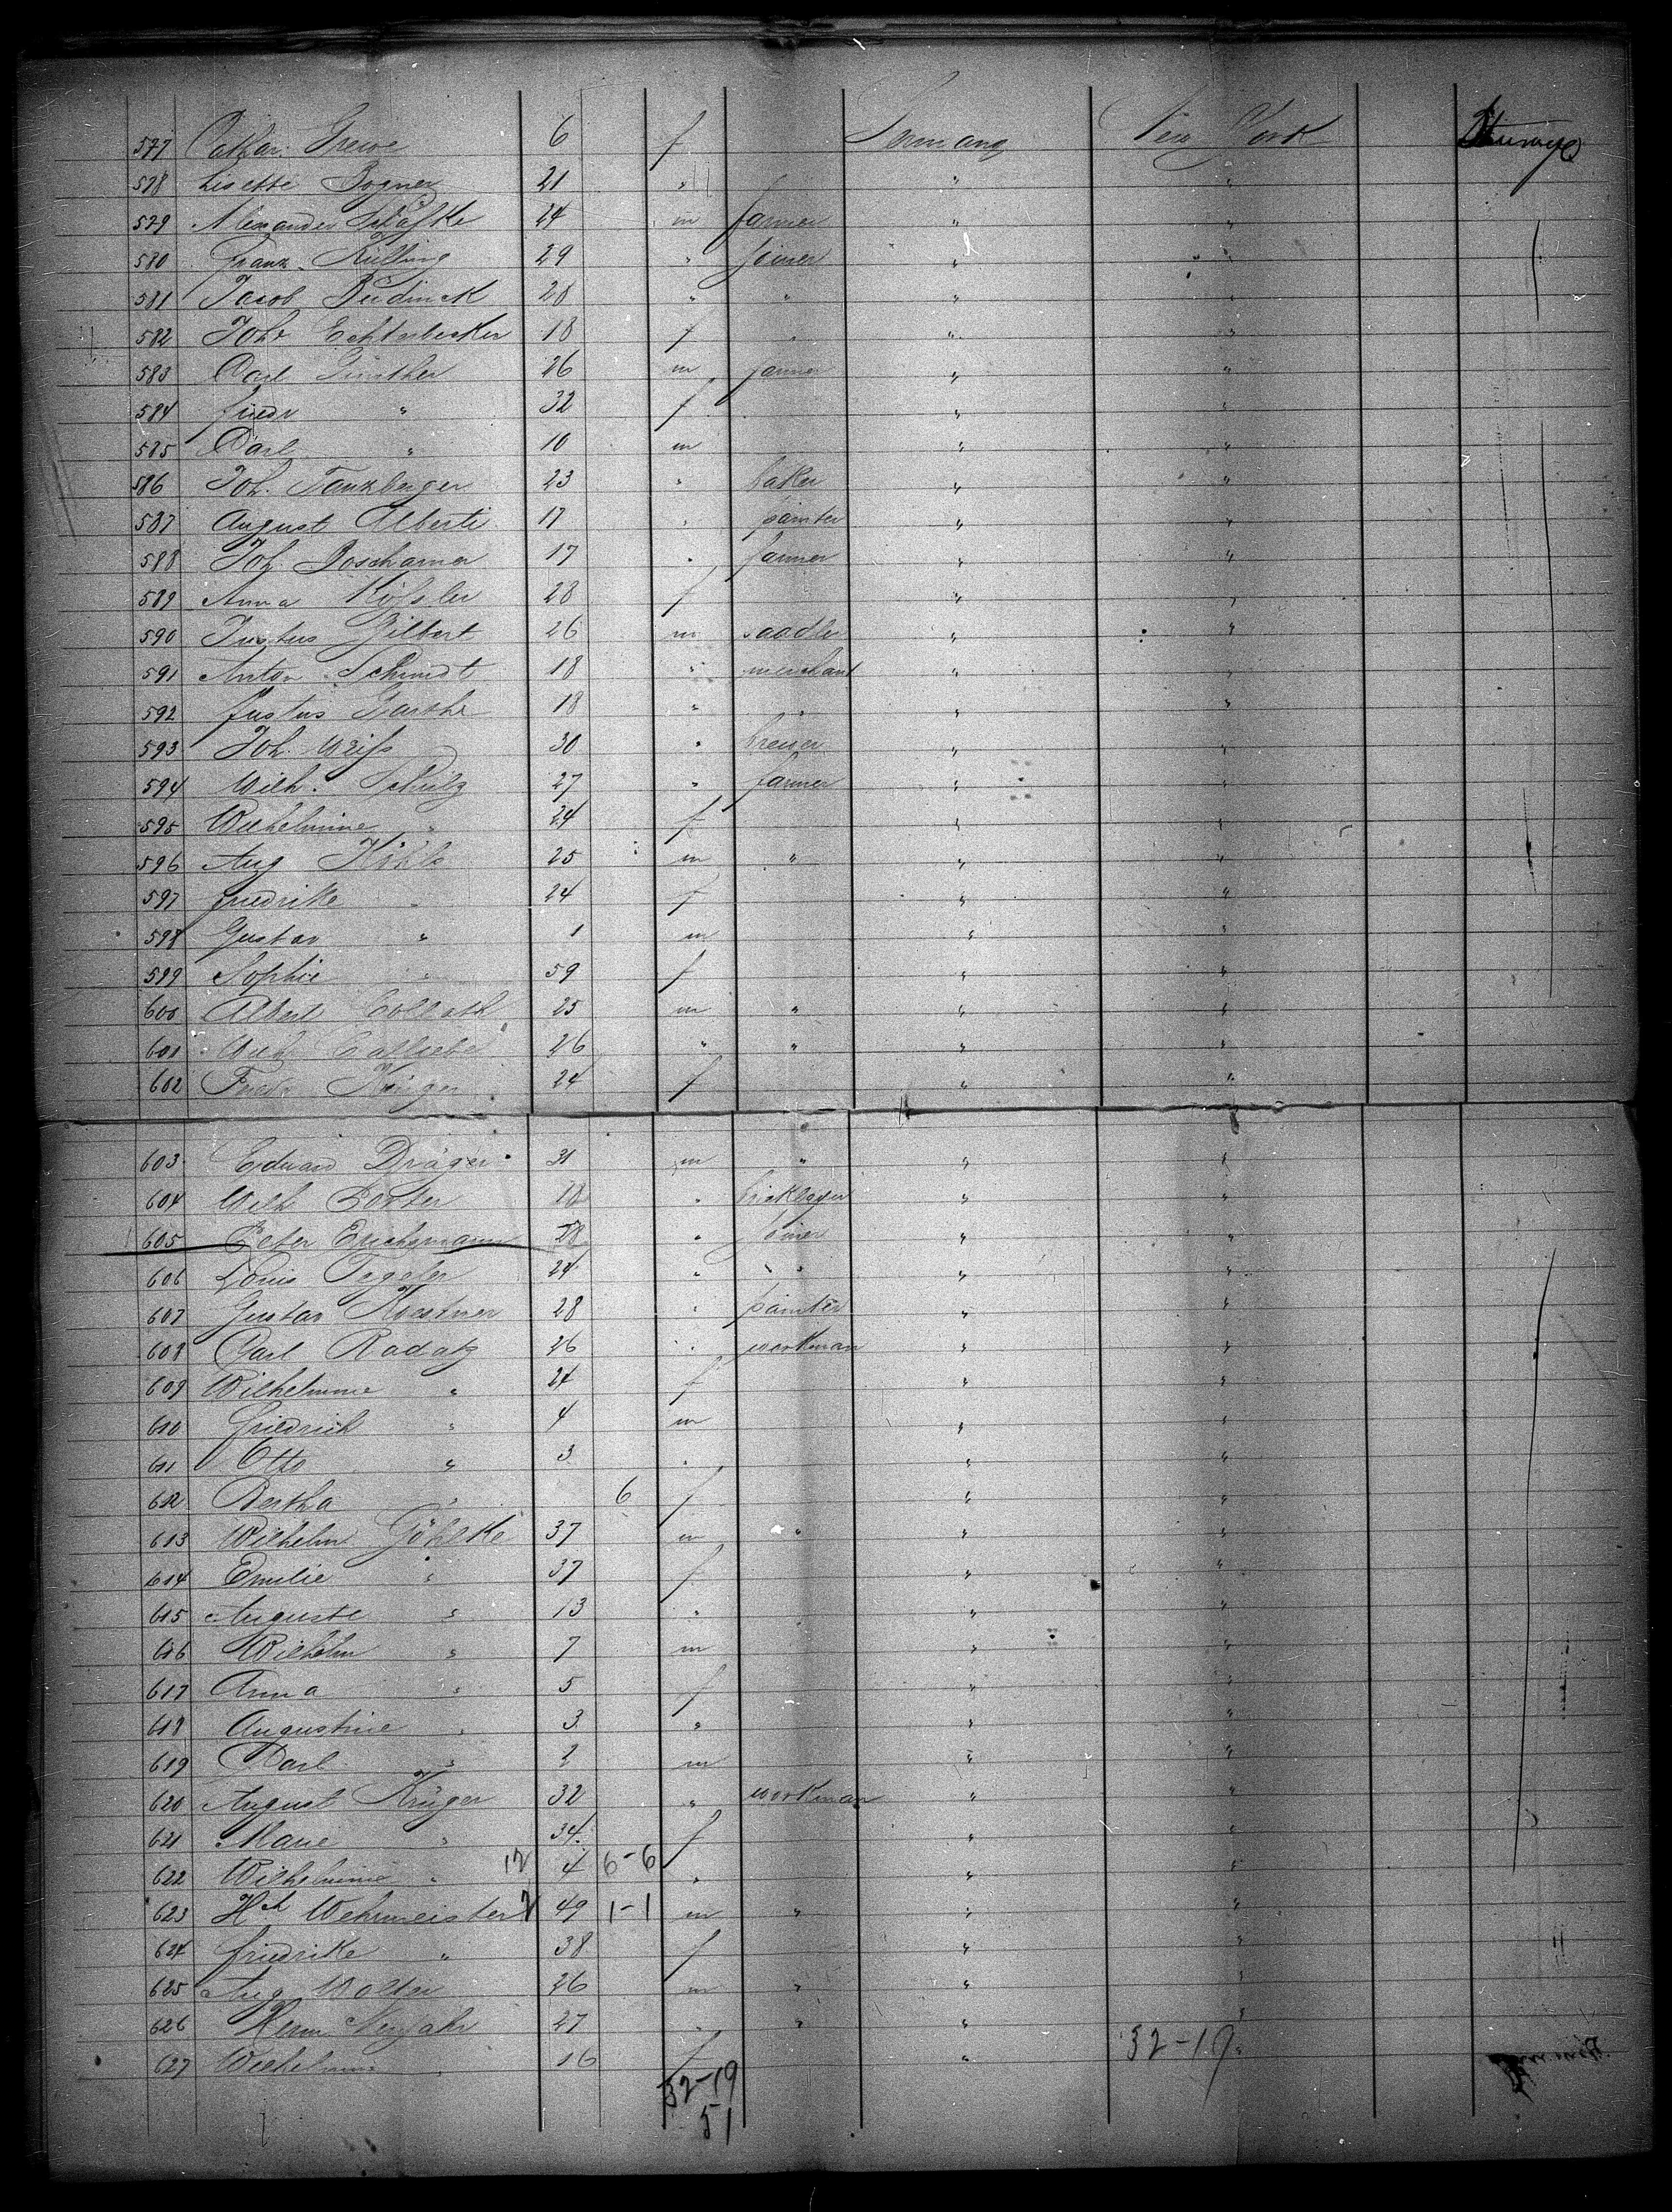 577 Cathar. Grewe 6 f Germany New York Steerage
578 Lisette Bogner 21 " " "
579 Alexander Schäfke 24 m farmer " "
580 Franz Külling 29 " joiner " "
581 Jacob Budinck 28 " " " "
582 Joh. Echterbecker 18 f " " "
583 Carl Günther 26 m farmer " "
584 Friedr " 32 f " "
585 Carl " 10 m " "
586 Joh. Tanzberger 23 " baker " "
587 August Alberti 17 " painter " "
588 Joh. Boschamer 17 " farmer " "
589 Anna Kofsler 28 f " "
590 Justus Gilbert 26 m saadler " "
591 Anton Schmidt 18 " merchant " "
592 Justus Barthe 18 " " " "
593 Joh. Weifs 30 " brewer " "
594 Wilh. Schulz 27 " farmer " "
595 Wilhelmine " 24 f " "
596 Aug 25 m " " "
597 Friedrike " 24 f " "
598 Gustav " 1 m " "
599 Sophie " 59 f " "
600 Albert Collath 25 m " " "
601 26 " " " "
602 Friedr. Krüger 24 f " "
603 Eduard Dräger 31 m " " "
604 Wilh 18 " bricklayer " "
605 Peter Erichsmann 28 " joiner " "
606 Louis Tegeler 24 " " " "
607 Gustav Kostner 28 " painter " "
608 Carl Radatz 26 " workman " "
609 Wilhelmine " 24 f " "
610 Friedrich " 4 m " "
611 Otto " 3 " " "
612 Bertha " 6 f " "
613 Wilhelm Göhlke 37 m " " "
614 Emilie " 37 f " "
615 Auguste " 13 " " "
616 Wilhelm " 7 m " "
617 Anna " 5 f " "
618 Augustine " 3 " " "
619 Carl " 2 m " "
620 August Krüger 32 " workman " "
621 Marie " 34 f " "
622 Wilhelmine " 12 4 6-6 " " "
623 Hch Wehmeister 49 1-1 m " " "
624 Friedrike " 38 f " "
625 Aug Wolter 26 m " " "
626 Herm Neujahr 27 " " " "
627 Wilhelmine " 16 f " 32-19 "
32-19
51